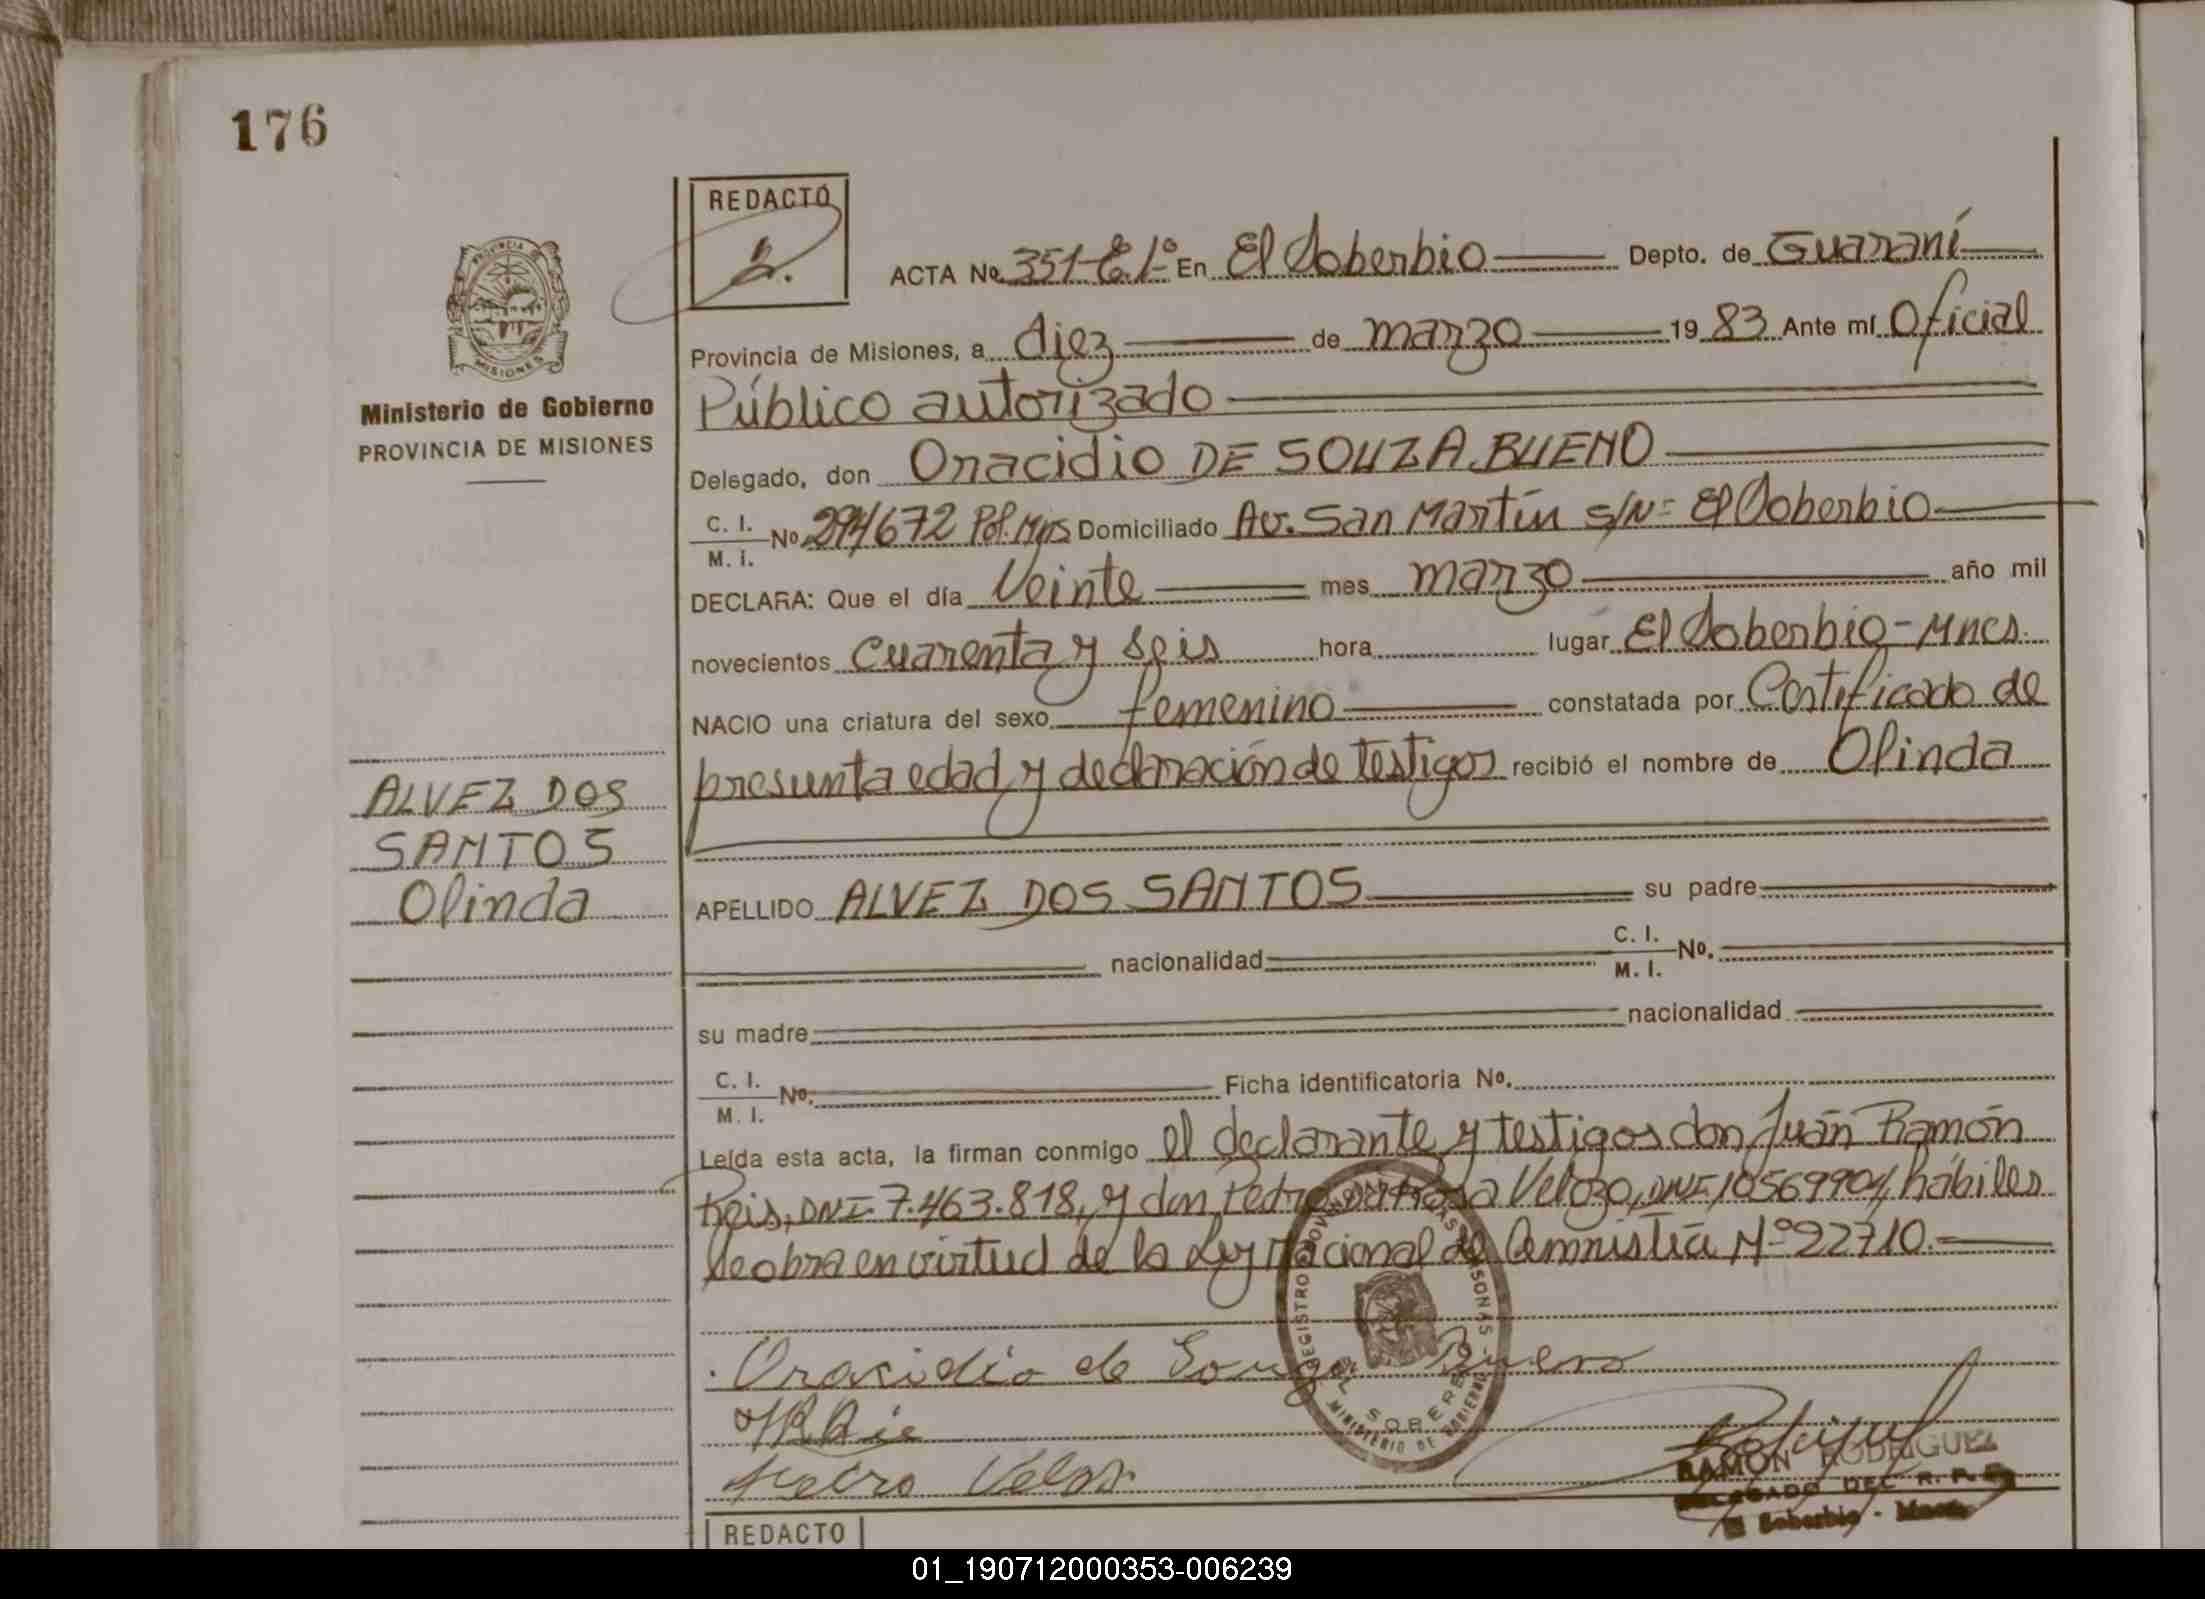 176
REDACTÓ
ACTA Nº 351-E.1º En El Soberbio Depto. de Guaraní
PROVINCIA DE
MISIONES
Provincia de Misiones, a diez de marzo 19 83 Ante mí Oficial
Ministerio de Gobierno
PROVINCIA DE MISIONES
Público autorizado
Delegado, don Oracidio DE SOUZA BUENO
C. I.
M. I.
Nº 294672 Pol. Mns Domiciliado Av. San Martín S/Nº El Soberbio
DECLARA: Que el día Veinte mes marzo año mil
novecientos Cuarenta y Seis hora lugar El Soberbio-Mnes.
NACIO una criatura del sexo femenino constatada por Certificado de
presunta edad y declaración de testigos recibió el nombre de Olinda
ALVEZ DOS
SANTOS
Olinda
APELLIDO ALVEZ DOS SANTOS su padre
nacionalidad C. I.
M. I. Nº.
su madre nacionalidad
C. I.
M. I. Nº. Ficha identificatoria Nº.
Leída esta acta, la firman conmigo el declarante y testigos don Juán Ramón
Reis, DNI. 7.463.818, y don Pedro Velozo, DNI. 10569904, hábiles
Se obra en virtud de la Ley Nacional de Amnistía Nº 22710.
Oracidio de Souza Bueno
Pedro Veloz
REGISTRO PROVINCIAL DE LAS PERSONAS
MINISTERIO DE GOBIERNO
EL SOBERBIO
RAMON RODRIGUEZ
DELEGADO DEL R. P. P.
El Soberbio - Mnes.
REDACTO
01_190712000353-006239